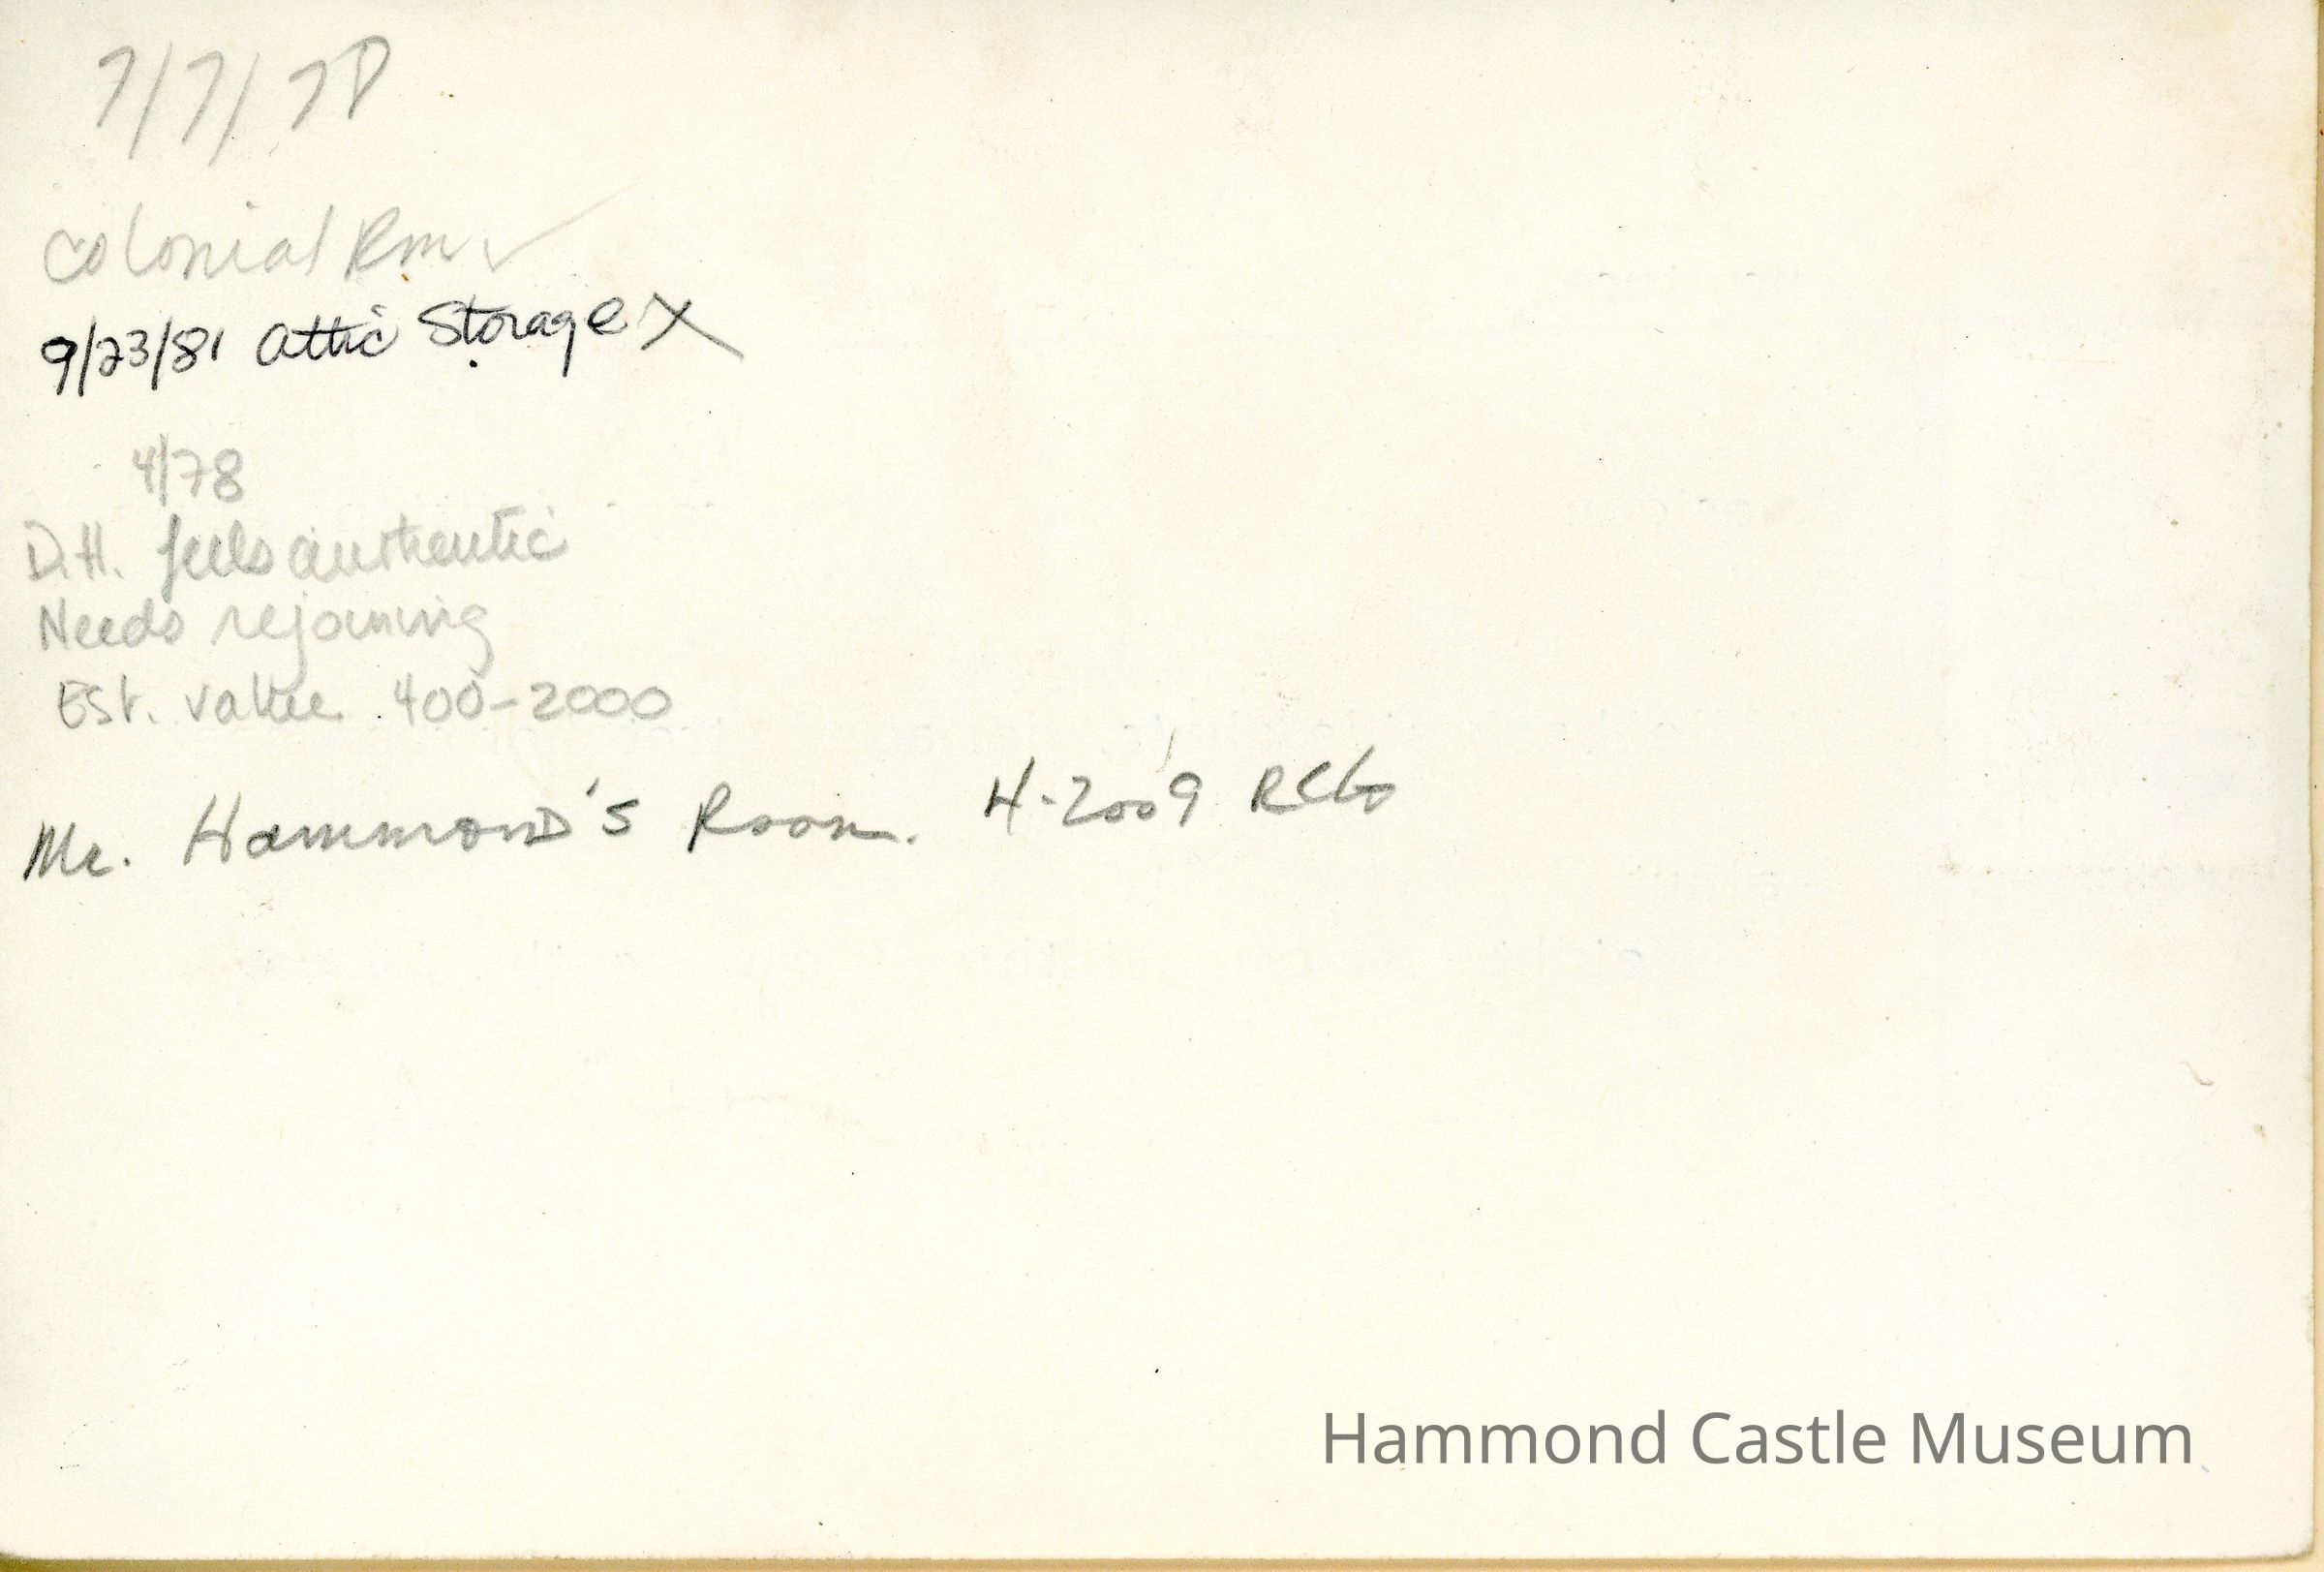 7/7/78
Colonial Rm ✓
9/23/81 Attic Storage X
4/78
D.H. feels authentic
Needs rejoining
Est. value 400-2000
Mr. Hammond's Room. 4-2009 RCG
Hammond Castle Museum